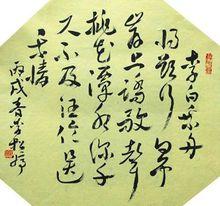 李白乘舟
将欲行忽闻
岸上踏歌声
桃花潭水深千
尺不及汪伦送
我情
丙戌